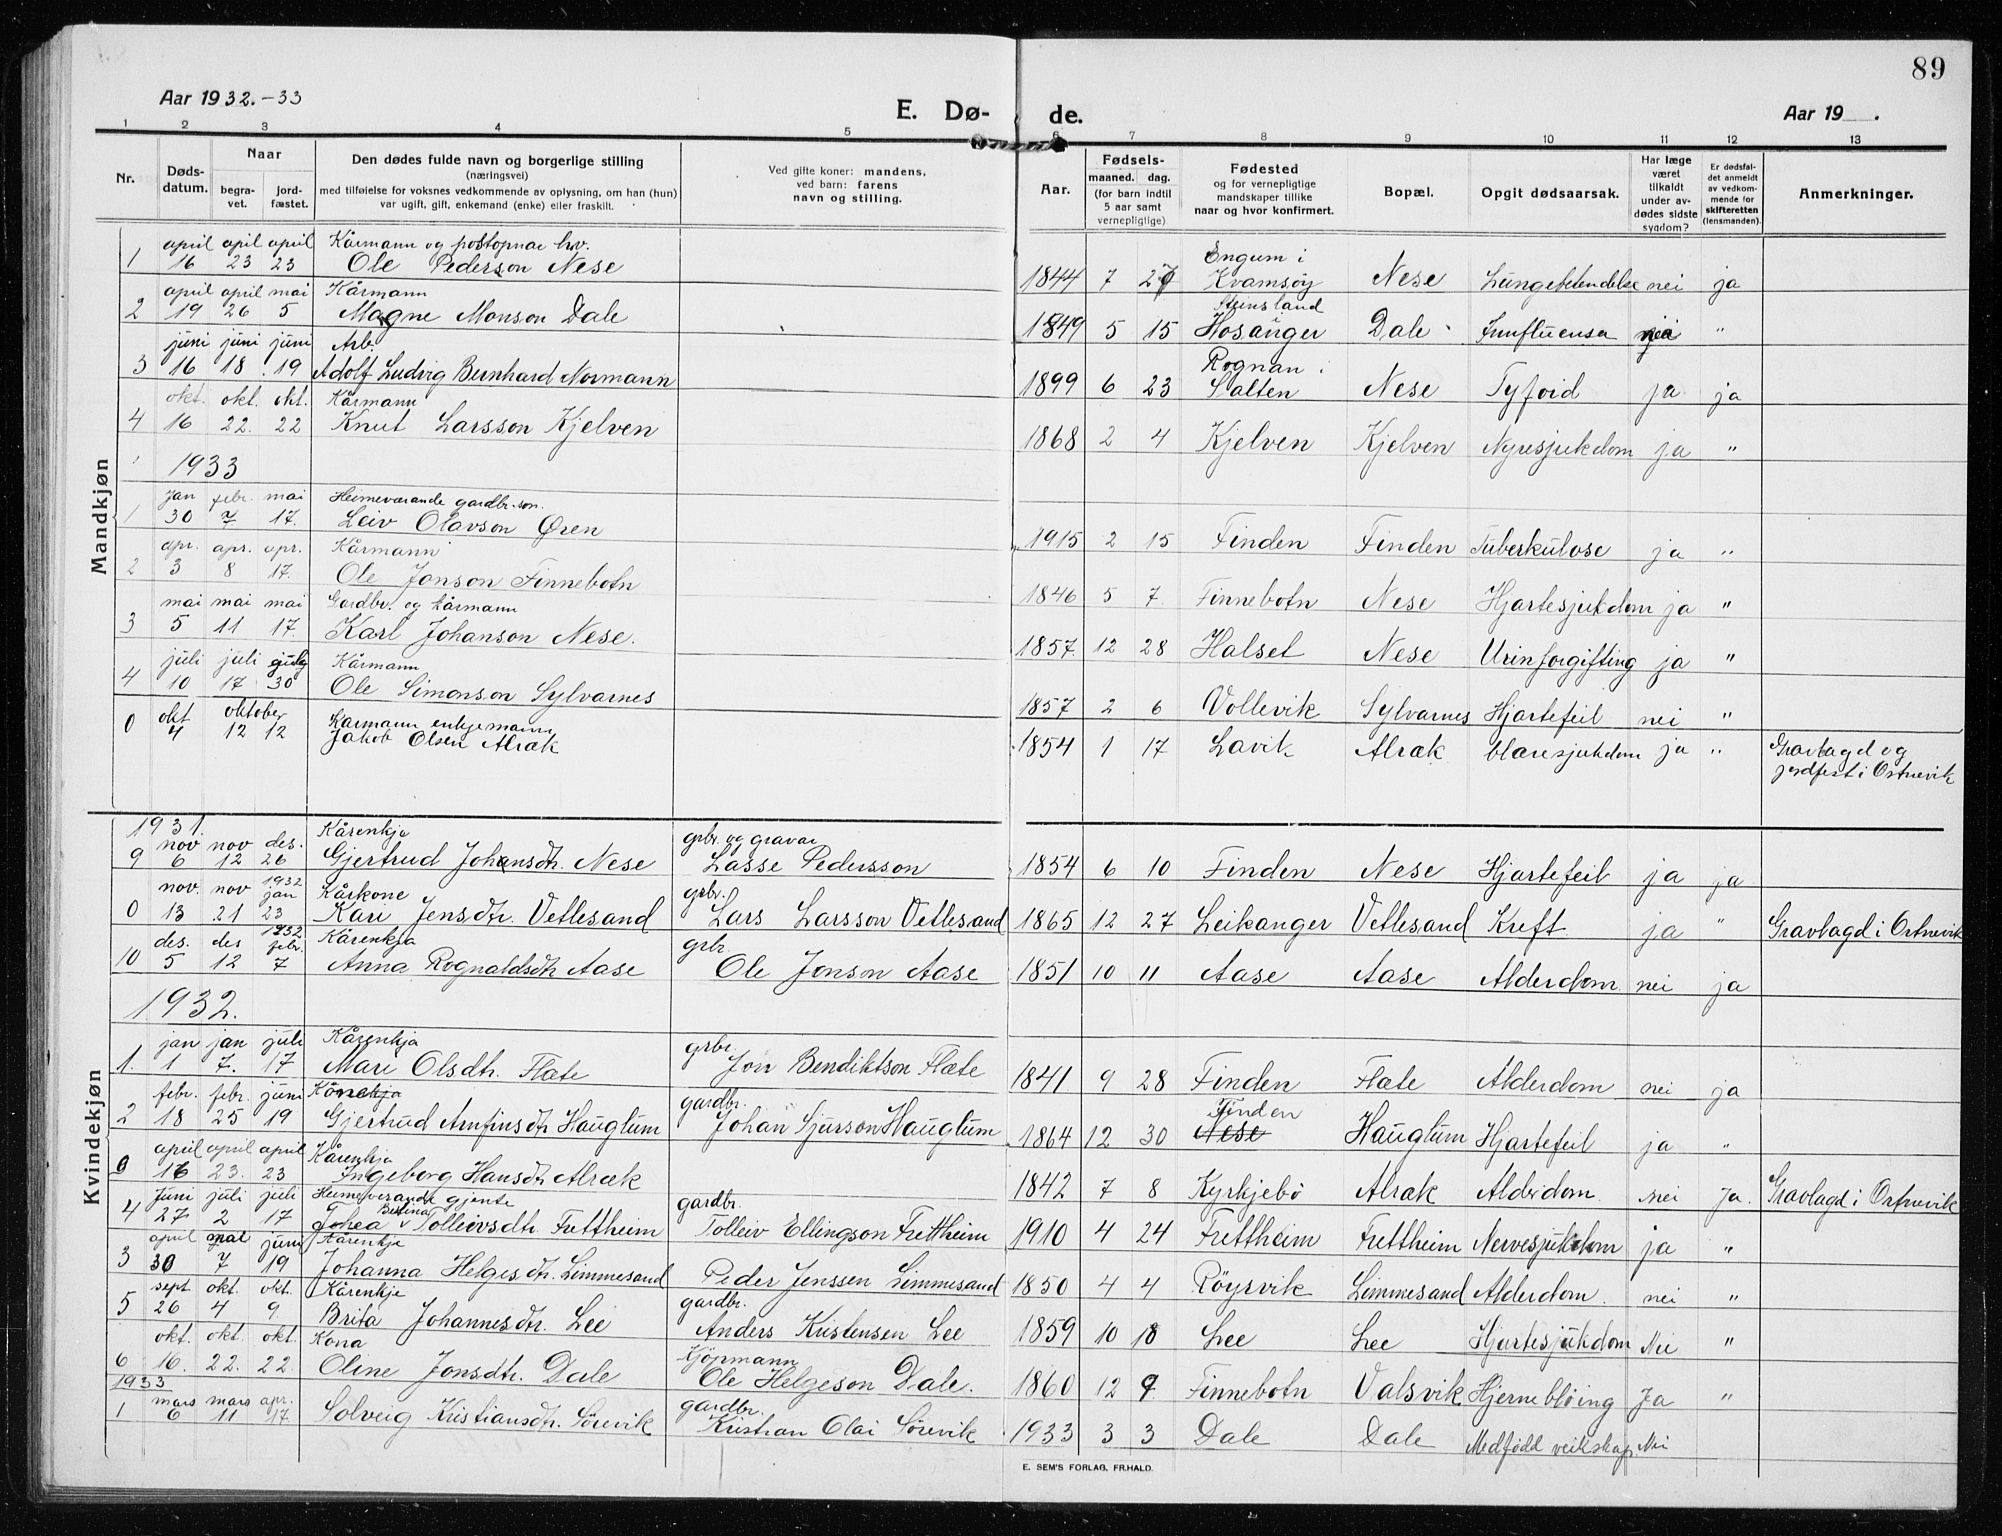 89
Aar 1932.-33
E. Dø-
de.
Aar 19 .
1 2 3 4 5 6 7 8 9 10 11 12 13
Nr.
Døds-
datum.
Naar
begra-
vet.
jord-
fæstet.
Den dødes fulde navn og borgerlige stilling
(næringsvei)
med tilføielse for voksnes vedkommende av oplysning, om han (hun)
var ugift, gift, enkemand (enke) eller fraskilt.
Ved gifte koner: mandens,
ved barn: farens
navn og stilling.
Aar.
Fødsels-
maaned. dag.
(for barn indtil
5 aar samt
vernepligtige)
Fødested
og for vernepligtige
mandskaper tillike
naar og hvor konfirmert.
Bopæl.
Opgit dødsaarsak.
Har læge
været
tilkaldt
under av-
dødes sidste
sygdom?
Er dødsfal-
det anmeldt
av vedkom-
mende for
skifteretten
(lensmanden).
Anmerkninger.
Mandkjøn
april april april Kårmann og postopnar hv. Engum i
1 16 23 23 Ole Pederson Nese 1844 7 27 Kvamsöy Nese nei ja
april april mai Kårmann Steinsland i
2 19 26 5 Magne Monson Dale 1849 5 15 Hosanger Dale Innfluensa "
juni juni juni Arb. Rognan i
3 16 18 19 Adolf Ludvig Bernhard Normann 1899 6 23 Salten Nese Tyfoid ja ja
okt. okt. okt. Kårmann
4 16 22. 22 Knut Larsson Kjelven 1868 2 4 Kjelven Kjelven Nyresjukdom ja "
1933
jan febr. mai Heimeværande gardbr.-son.
1 30 7 17. Leiv Olavson Øren 1915 2 15 Finden Finden Tuberkulose ja "
apr. apr. apr. Kårmann
2 3 8 17. Ole Jonson Finnebotn 1846 5 7 Finnebotn Nese Hjartesjukdom ja "
mai mai mai Gardbr. og kårmann
3 5 11 17. Karl Johanson Nese. 1857. 12 28 Halset Nese Urinforgifting ja "
juli juli Kårmann
4 10 17 30 Ole Simonson Sylvarnes 1857 2 6 Vollevik Sylvarnes Hjartefeil nei "
okt oktober Kårmann enkjemann
0 4 12 12 Jakob Olsen Alræk 1854 1 17 Lavik Alræk blæresjukdom ja " Gravlagd og
jordfest i Ortnevik
Kvindekjøn
1931.
nov nov des. Kårenkja grbr og gravar
9 6 12 26 Gjertrud Johansdtr. Nese Lasse Pedersson 1854 6 10 Finden Nese Hjartefeil ja ja
nov. nov 1932 jan Kårkone grbr.
0 13 21 23 Kari Jensdtr. Vetlesand Lars Larsson Vetlesand 1865 12 27 Leikanger Vetlesand Kreft. ja " Gravlagd i Ortnevik
des. des 1932 febr. Kårenkja grbr.
10 5 12 7 Anna Rognaldsdtr Aase Ole Jonson Aase 1851 10 11 Aase Aase Alderdom. nei ja
1932.
jan jan juli Kårenkja grbr.
1. 1 7. 17 Mari Olsdtr. Flåte Jon Bendiktson Flåte 1841 9 28 Finden Flåte Alderdom nei ja
febr. febr. juni gardbr. Finden
2 18 25 19 Gjertrud Arnfinsdtr Hauglum Johan Sjursson Hauglum 1864 12 30 Nese Hauglum Hjartefeil ja "
april april april Kårenkja
0 16 23. 23 Ingeborg Hansdtr Alræk 1842 7 8 Kyrkjebö Alræk Alderdom. nei Ja. Gravlagd i Ortnevik
Juni juli juli Heimeverande gjente gardbr.
4 27 2 17 Johea Betina Tolleivsdtr. Frettheim Tolleiv Ellingson Frettheim 1910 4 24 Frettheim Frettheim Nervesjukdom ja "
april mai juni Kårenkje
3 30 7 19 Johanna Helgesdtr. Limmesand Peder Jenssen Limmesand 1850 4 4 Röysvik Limmesand Alderdom. nei "
sept. okt. okt. Kårenkje gardbr.
5 26 4 9 Brita Johannesdtr. Lee Anders Kristensen Lee 1859 10 18 Lee Lee Hjartesjukdom Nei "
okt. okt. okt. Kona Kjöpmann
6 16. 22. 22 Oline Jonsdtr. Dale Ole Helgeson Dale. 1860 12 9. Finnebotn Valsvik Hjernebløing Ja "
1933
mars mars apr. gardbr.
1 6 11 17 Solveig Kristiansdtr. Sörevik Kristian Olai Sörevik 1933 3 3 Dale Dale Medfödd veikskap. Nei
E. SEM'S FORLAG, FR.HALD.